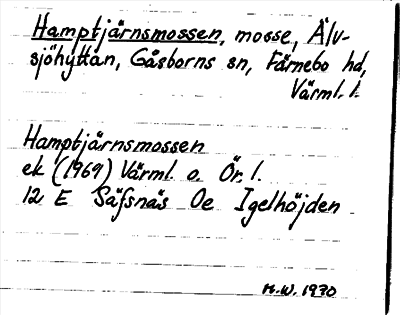 Hamptjärnsmossen, mosse, Älv-
sjöhyttan, Gåsborns sn, Färnebo hd,
Värml. l.
Hamptjärnsmossen
ek (1969) Värml. o. Ör. l.
12 E Säfsnäs Oe Igelhöjden
M.W. 1970